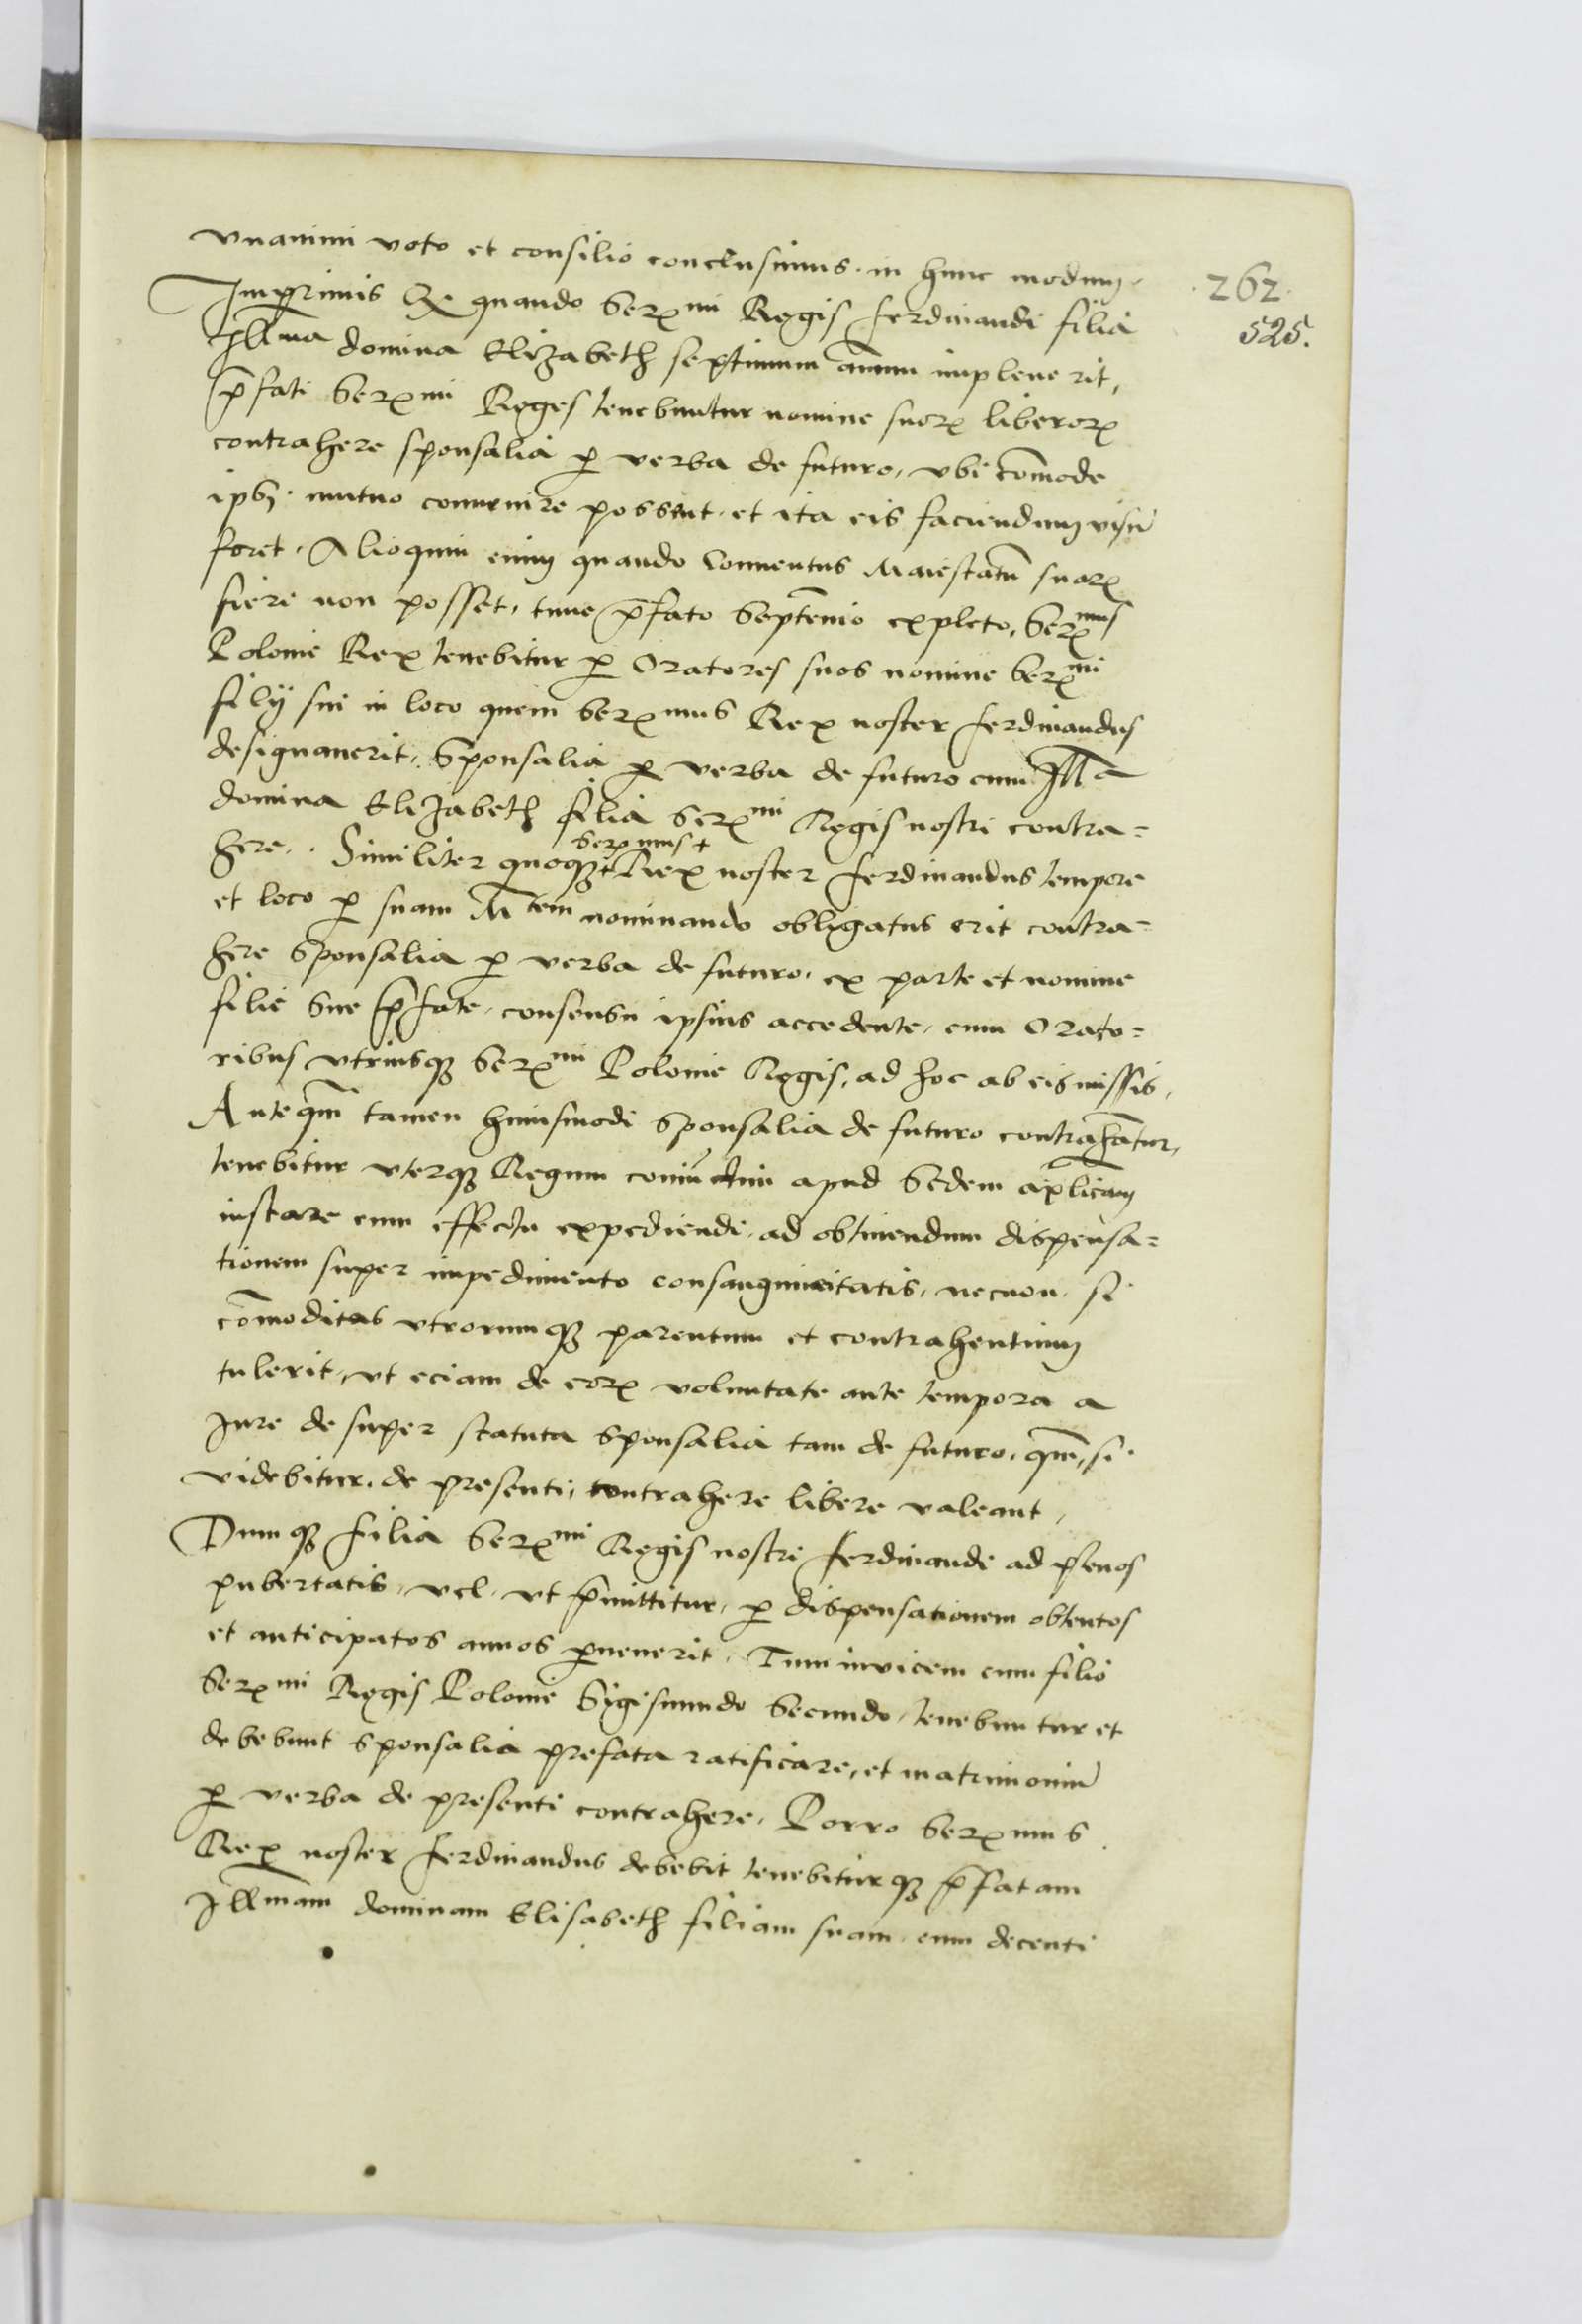 vnanimi voto et consilio conclusimus. in hunc modum.
262.
525.
Imprimis Q quando Serxmi Regis Ferdinandi filia
Illma domina Elizabeth septimum annum impleuerit,
p̄fati Serxmi Reges tenebuntur nomine suorꝝ liberorꝝ
contrahere sponsalia ꝑ verba de futuro, vbi com̄ode
ipsi mutuo conuenire possent, et ita eis faciendum visū
foret. Alioquin enim quando Conuentus Maiestatū suarꝝ
fieri non posset, tunc p̄fato Septēnio expleto, Serxmus
Polonie Rex tenebitur ꝑ Oratores suos nomine Serxmi
filÿ sui in loco quem Serxmus Rex noster Ferdinandus
designauerit, Sponsalia ꝑ verba de futuro cum Illa
domina Elizabeth filia Serxmi Regis nostri contra=
here. Similiter quoqꝫ + Serxmus + Rex noster Ferdinandus tempore
et loco ꝑ suam Mtem nominando obligatus erit contra=
here Sponsalia ꝑ verba de futuro, ex parte et nomine
filie Sue p̄fate, consensu ipsius accedente, cum Orato=
ribus vtriusqꝫ Serxmi Polonie Regis, ad hoc ab eis missis,
Anteqm̄ tamen huiusmodi Sponsalia de futuro contrahātur,
tenebitur vterqꝫ Regum coniūctim apud Sedem ap̄licam
instare cum effectu expediendi, ad obtinendum dispensa=
tionem super impedimento consanguineitatis, necnon, si
com̄oditas vtrorumqꝫ parentum et contrahentium
tulerit, vt eciam de eorꝝ voluntate ante tempora a
Iure de super statuta Sponsalia tam de futuro, qm̄, si
videbitur, de presenti, contrahere libere valeant,
Dumqꝫ filia Serxmi Regis nostri Ferdinandi ad plenos
pubertatis, vel, vt p̄mittitur, ꝑ dispensationem obtentos
et anticipatos annos ꝑuenerit, Tum inuicem cum filio
Serxmi Regis Polonie Sigismundo Secundo, tenebuntur et
debebunt sponsalia prefata ratificare, et matrimoniū
ꝑ verba de presenti contrahere, Porro Serxmus
Rex noster Ferdinandus debebit tenebiturqꝫ p̄fatam
Illmam dominam Elisabeth filiam suam, cum decenti